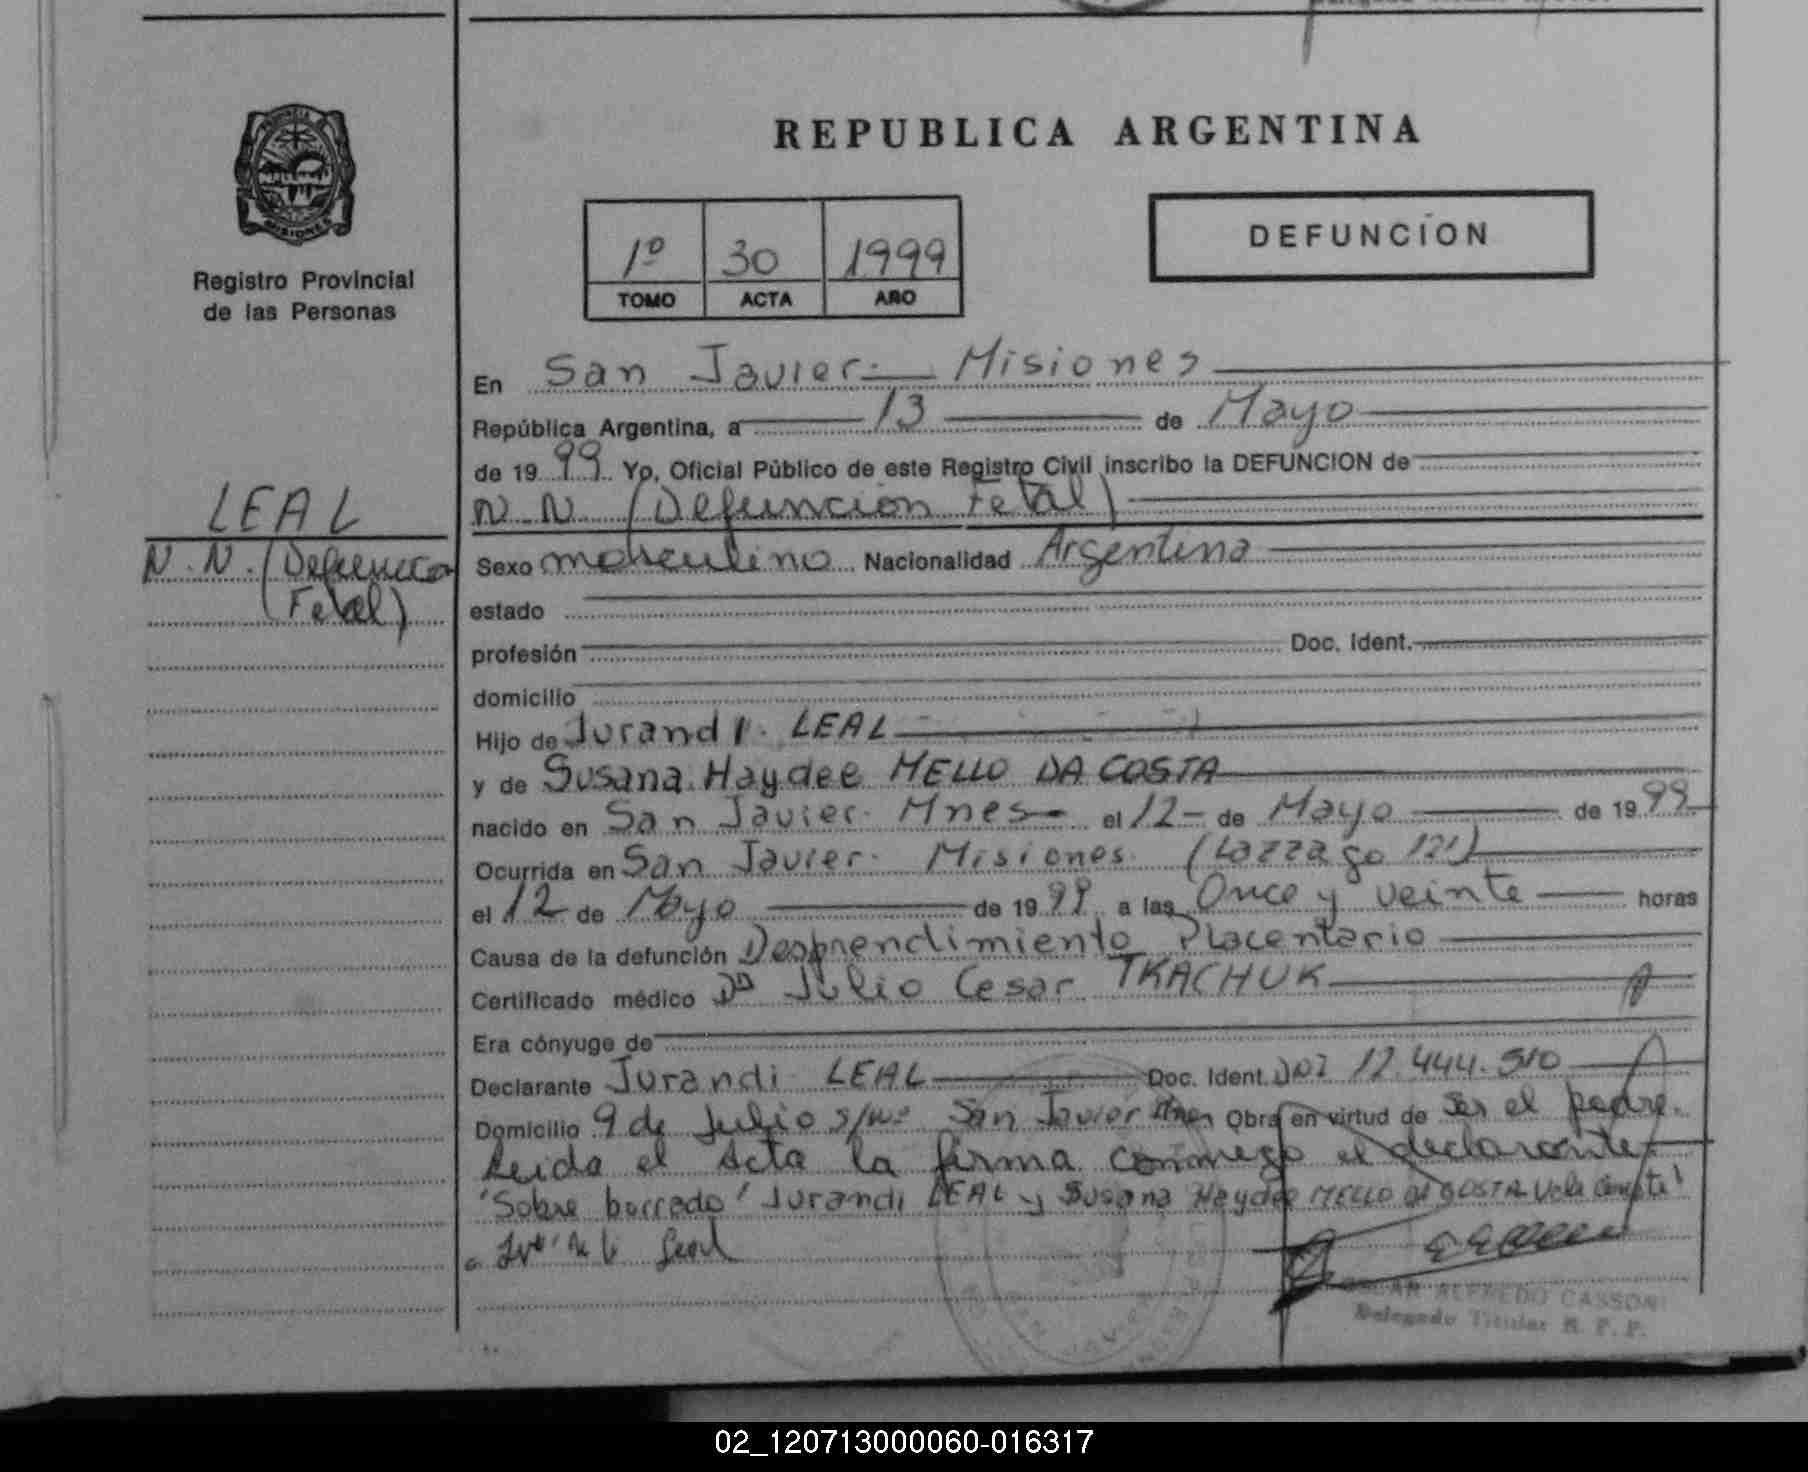 REPUBLICA ARGENTINA
PROVINCIA DE
MISIONES
Registro Provincial
de las Personas
1º 30 1999
TOMO ACTA AÑO
DEFUNCION
En San Javier Misiones
República Argentina, a 13 de Mayo
de 1999 Yo, Oficial Público de este Registro Civil inscribo la DEFUNCION de
N.N (Defuncion Fetal)
LEAL
N.N. (Defuncion
(Fetal)
Sexo masculino Nacionalidad Argentina
estado
profesión Doc. Ident.
domicilio
Hijo de Jurandi LEAL
y de Susana Haydee MELLO DA COSTA
nacido en San Javier Mnes el 12 de Mayo de 1999
Ocurrida en San Javier Misiones 121)
el 12 de Mayo de 1999 a las Once y veinte horas
Causa de la defunción Desprendimiento Placentario
Certificado médico Dr Julio Cesar TKACHUK
Era cónyuge de
Declarante Jurandi LEAL Doc. Ident. DNI 12.444.510
Domicilio 9 de Julio s/nº San Javier Mnes Obra en virtud de Ser el padre.
Leida el Acta la firma conmigo el declarante
"Sobre borrado" Jurandi LEAL y Susana Haydee MELLO DA COSTA Vale
OSCAR ALFREDO CASSONI
Delegado Titular R. P. P.
02_120713000060-016317